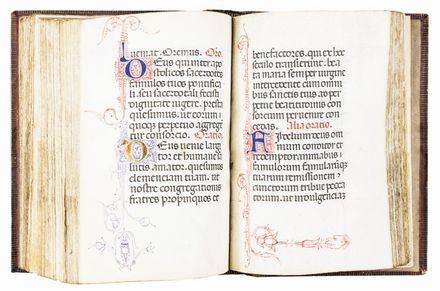 Oremus. Oro.
Deus qui inter apo
stolicos sacerdotes
famulos tuos pontifi
li. seu sacerdotali fecisti
dignitate uigere. presta
quesumus. ut eorum
quoq; perpetuo aggreg
tur consortio. Oratio.
Deus uenie largi
tor et humane sa
lutis amator. quesumus
clementiam tuam. ut
nostre congregationis
fratres propinquos et
benefactores. qui ex hoc
seculo transierunt. bea
ta maria semper uirgine
intercedente cum omni
bus sanctis tuis ad per
petue beatitudinis con
sortium peruenire con
cedas. Alia oratio.
Fidelium deus om
nium conditor et
redemptor. animabus
famulorum famularumq;
tuarum remissionem
cunctorum tribue pecca
torum. ut indulgenciaz